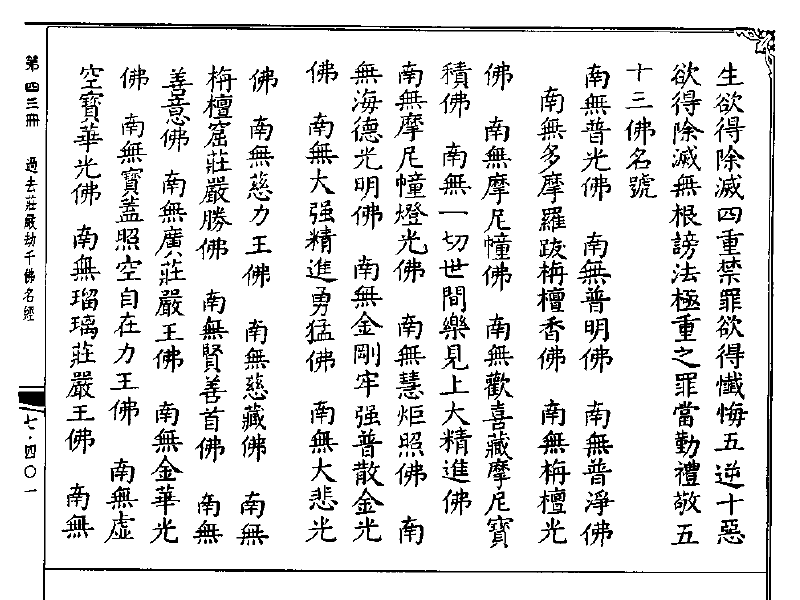 生欲得除滅四重禁罪欲得懺悔五逆十惡
欲得除滅無根謗法極重之罪當勤禮敬五
十三佛名號
南無普光佛　南無普明佛　南無普淨佛
南無多摩羅跋栴檀香佛　南無栴檀光
佛　南無摩尼幢佛　南無歡喜藏摩尼寶
積佛　南無一切世間樂見上大精進佛
南無摩尼幢燈光佛　南無慧炬照佛　南
無海德光明佛　南無金剛牢强普散金光
佛　南無大强精進勇猛佛　南無大悲光
佛　南無慈力王佛　南無慈藏佛　南無
栴檀窟莊嚴勝佛　南無賢善首佛　南無
善意佛　南無廣莊嚴王佛　南無金華光
佛　南無寶蓋照空自在力王佛　南無虛
空寶華光佛　南無瑠璃莊嚴王佛　南無
第四三冊　過去莊嚴劫千佛名經
七·四〇一